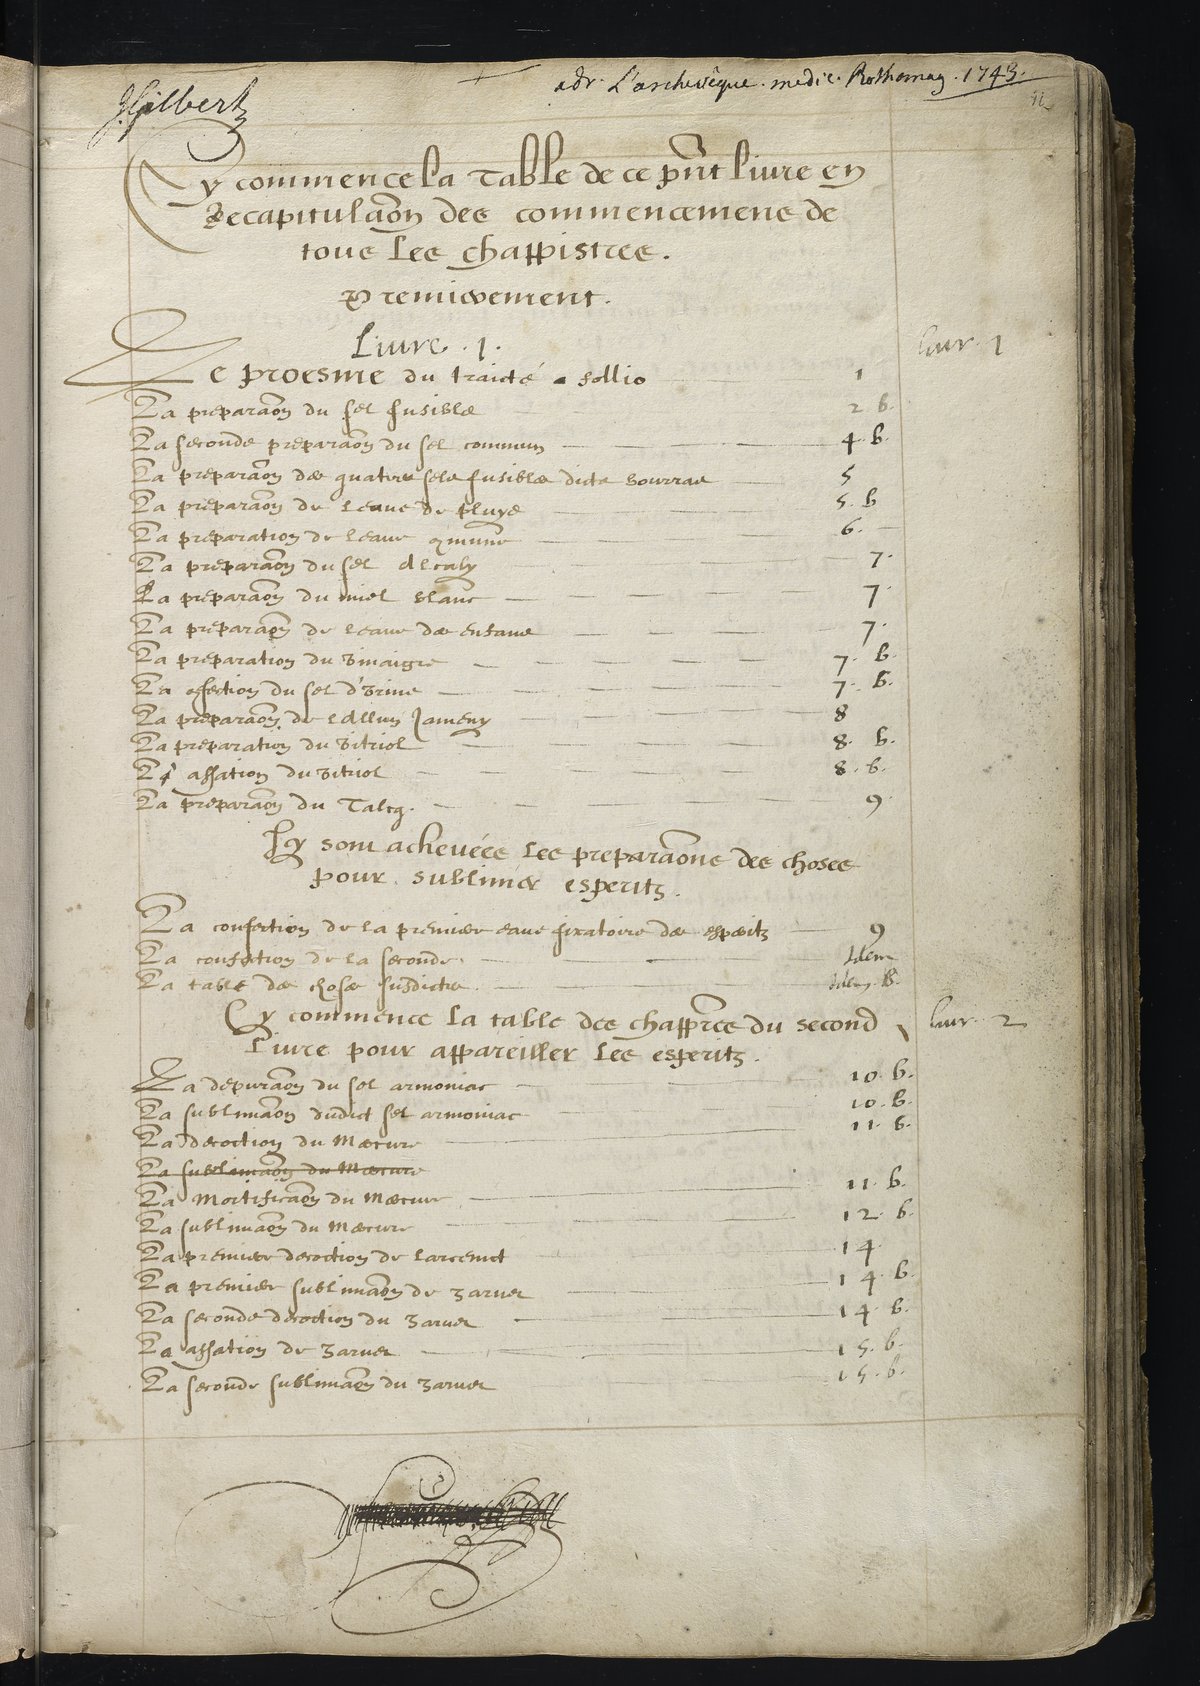 J Gilbert
adr. L'archevêque. medic. Rothomag. 1743.
Cy commence la Table de ce pñt livre en
Recapitulaõn des commencemens de
tous les chappistres.
Premierement.
Livre . 1.
livr. 1
Le proesme du traicté 1
La preparaõn du sel fusible 2 b.
La seconde preparaõn du sel commun 4. b.
La preparaõn des quatres sels fusibles dicts bourras 5
La preparaõn de leaue de pluye 5. b
La preparation de leaue 9mune 6.
La preparaõn du sel alcaly 7.
La preparaõn du miel blanc 7.
La preparaõn de leaue des enfans 7.
La preparation du vinaigre 7. b.
La 9fection du sel d'vrine 7. b.
La preparaõn de lallun Jameny 8
La preparation du vitriol 8. b.
La assation du vitriol 8. b.
La preparaõn du Talcq. 9
Cy sont achevées les preparaõns des choses
pour sublimer esperitz.
La confection de la premiere eaue fixatoire des esperitz 9
La confection de la seconde. Idem
La table des choses susdictes. Idem. b.
Cy commence la table des chapp̃res du second
livr. 2
livre pour appareiller les esperitz.
La depuraõn du sel armoniac 10. b.
La sublimaõn dudict sel armoniac 10. b.
La decoction du Mercure 11. b.
La sublimaõn du Mercure
La Mortificaõn du Mercure 11. b.
La sublimaõn du Mercure 12. b.
La premiere decoction de larcenict 14
La premiere sublimaõn de zarner 14. b.
La seconde decoction du zarner 14. b.
La assation de zarner 15. b.
La seconde sublimaõn du zarner 15. b.